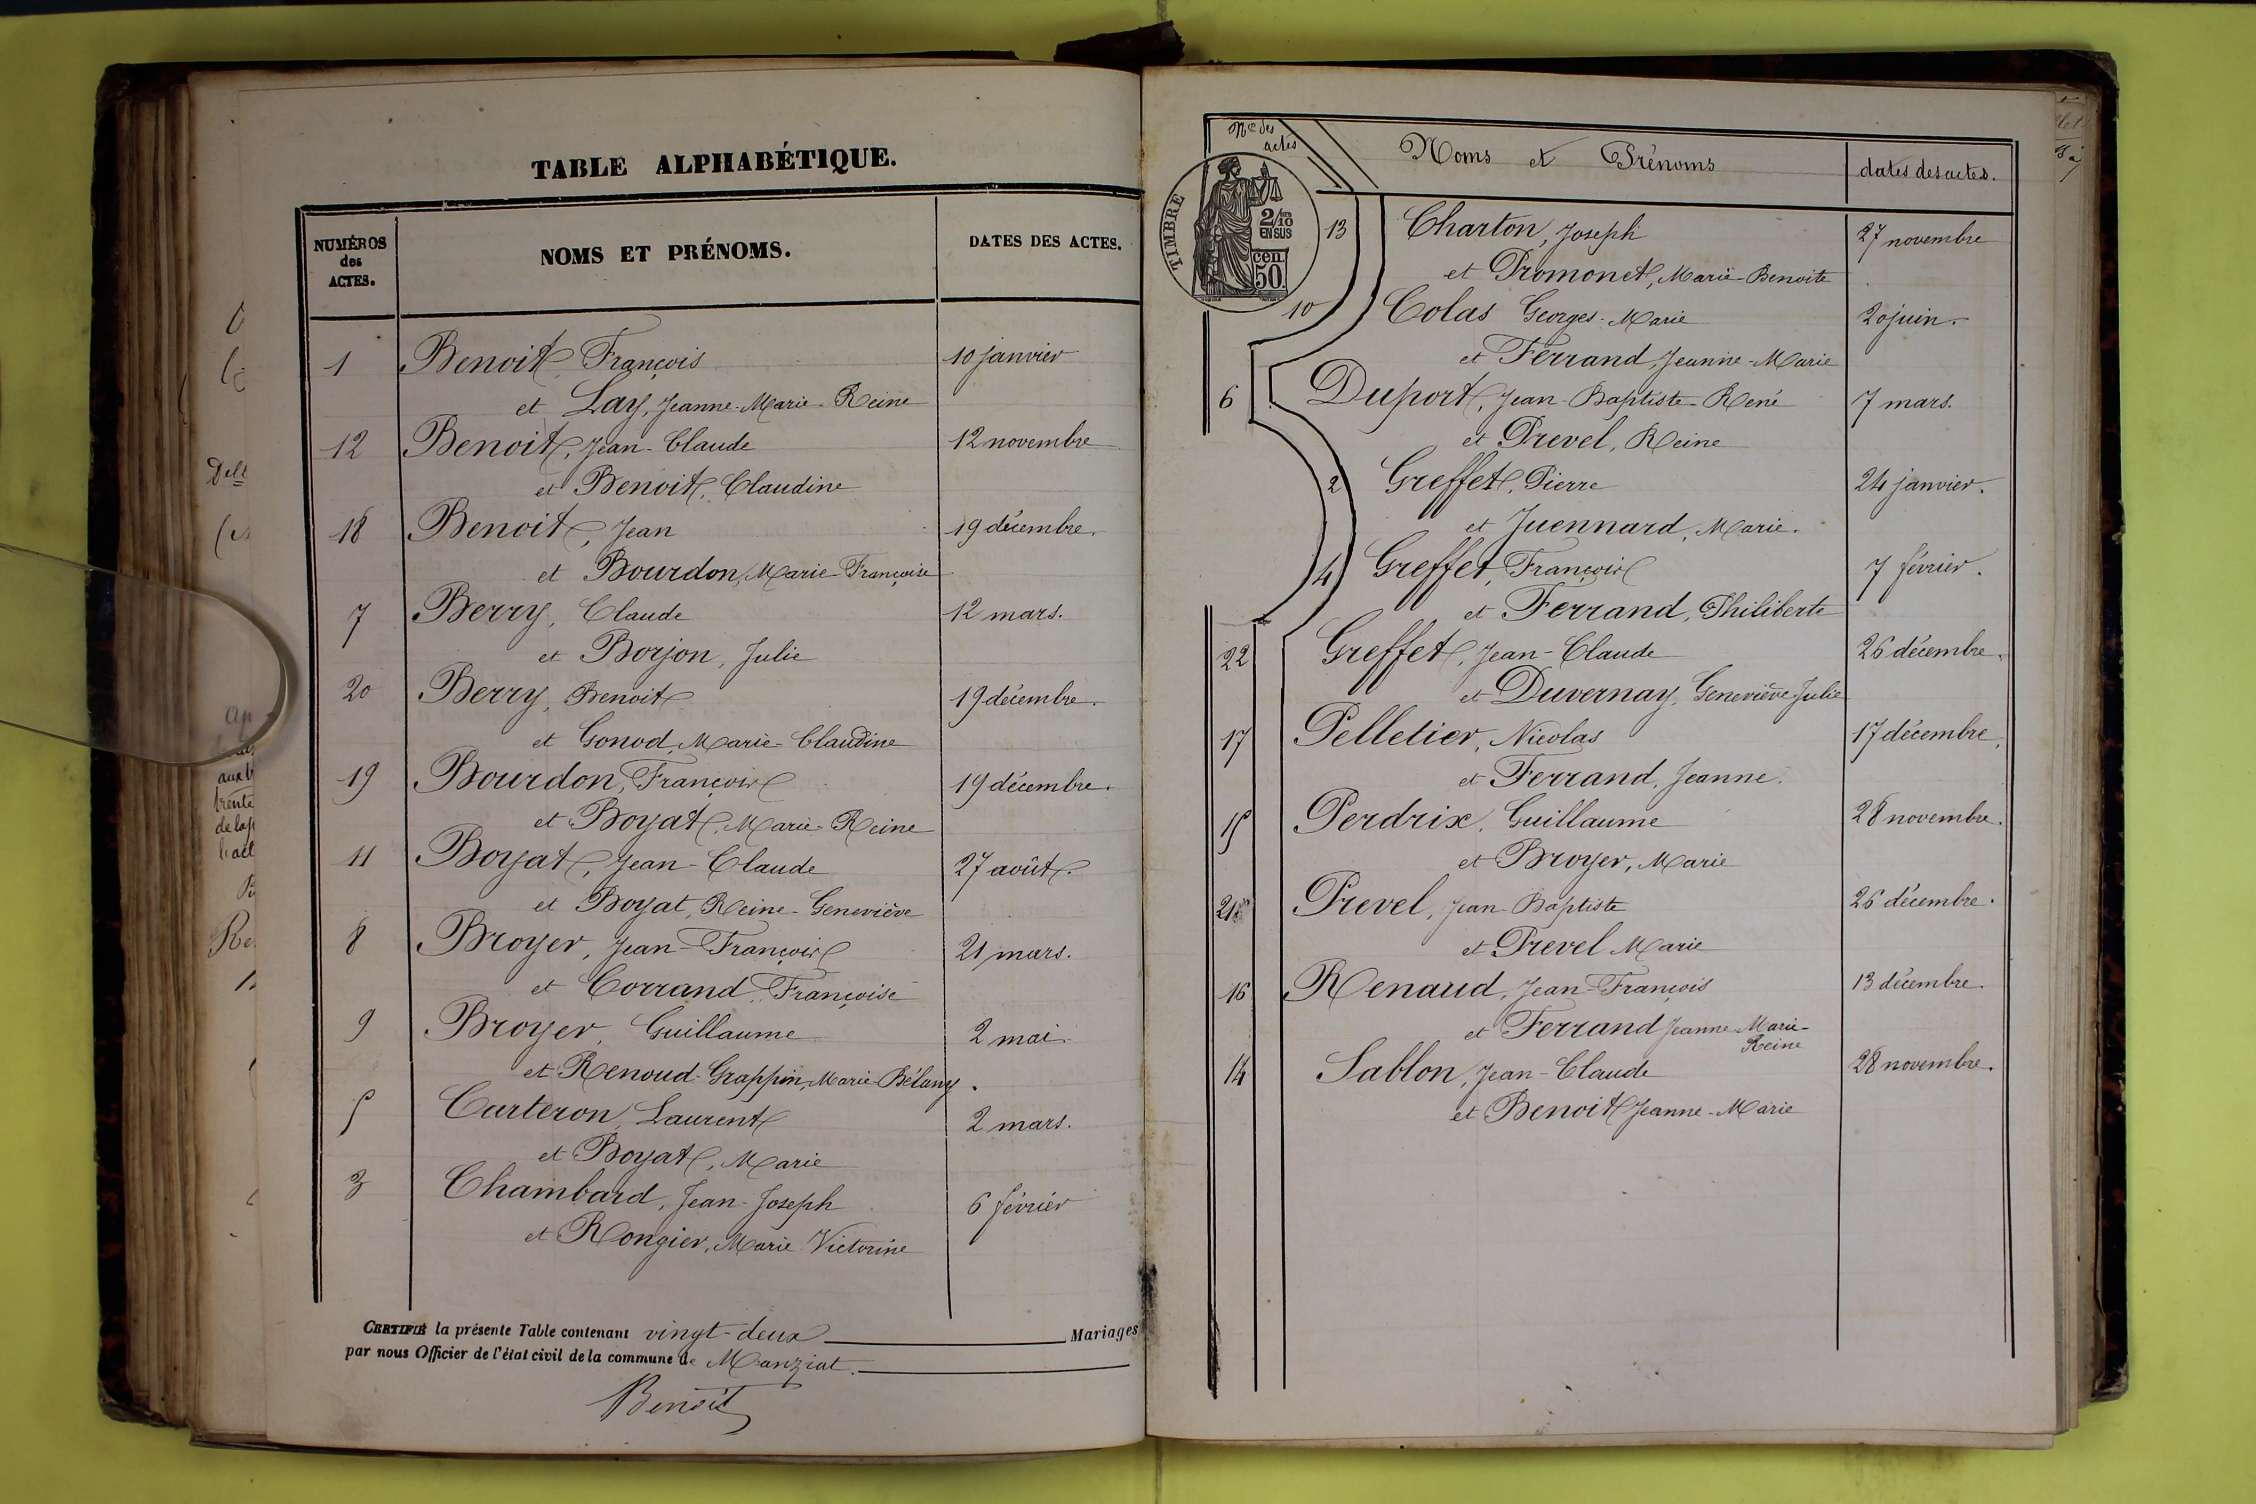 TABLE ALPHABÉTIQUE.
NUMÉROS des ACTES.
NOMS ET PRÉNOMS.
DATES DES ACTES.
1 Benoit, François 10 janvier
et Lay, Jeanne-Marie-Reine
12 Benoit, Jean-Claude 12 novembre
et Benoit, Claudine
18 Benoit, Jean 19 décembre.
et Bourdon, Marie-Françoise
7 Berry, Claude 12 mars.
et Borjon, Julie
20 Berry, Benoit 19 décembre.
et Gonod, Marie-Claudine
19 Bourdon, François 19 décembre.
et Boyat, Marie-Reine
11 Boyat, Jean-Claude 27 août.
et Boyat, Reine-Geneviève
8 Broyer, Jean-François 21 mars.
et Corrand, Françoise
9 Broyer, Guillaume 2 mai.
et Renoud-Grappin, Marie
5 Carteron, Laurent 2 mars.
et Boyat, Marie
3 Chambard, Jean-Joseph 6 février
et Rongier, Marie Victorine
CERTIFIÉ la présente Table contenant vingt-deux Mariages
par nous Officier de l'état civil de la commune de Manziat.
Benoit
Nos des actes
Noms et Prénoms
dates des actes.
TIMBRE
2/10 EN SUS
50 cen.
13 Charton, Joseph 27 novembre
et Promonet, Marie-Benoite
10 Colas Georges-Marie 20 juin.
et Ferrand, Jeanne-Marie
6 Duport, Jean-Baptiste-René 7 mars.
et Prevel, Reine
2 Greffet, Pierre 24 janvier.
et Juennard, Marie.
4 Greffet, François 7 février.
et Ferrand, Philiberte
22 Greffet, Jean-Claude 26 décembre.
et Duvernay, Geneviève-Julie
17 Pelletier, Nicolas 17 décembre.
et Ferrand, Jeanne.
15 Perdrix, Guillaume 28 novembre.
et Broyer, Marie
21 Prevel, Jean-Baptiste 26 décembre.
et Prevel Marie
16 Renaud, Jean-François 13 décembre.
et Ferrand Jeanne-Marie-
Reine
14 Sablon, Jean-Claude 28 novembre.
et Benoit Jeanne-Marie